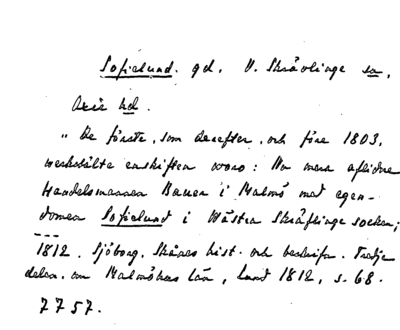 Sofielund. gd. V. Skrävlinge sn,
Oxie hd.
"De förste, som derefter, och före 1803,
werkstälte enskiften woro: Nu mera aflidne
Handelsmannen Bauer i Malmö med egen-
domen Sofielund i Wästra Skräflinge socken;
---
1812. Sjöborg, Skånes hist. och beskrifn. Tredje
delen, om Malmöhus län, Lund 1812, s. 68.
7757.